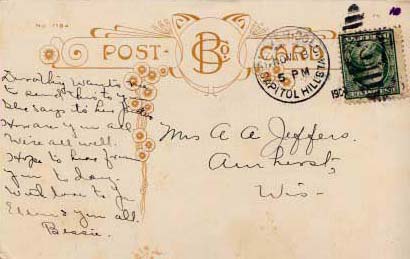 No. 1184
POST- B Co. CARD
5 PM
CAPITOL HILL STA.
190
Dorothy wants me
to send this to you
She says to her
How are you all
We're all well.
Hope to hear from
you to day.
With love to
you all.
Bessie.
Mrs A A Jeffers.
Amherst,
Wis-